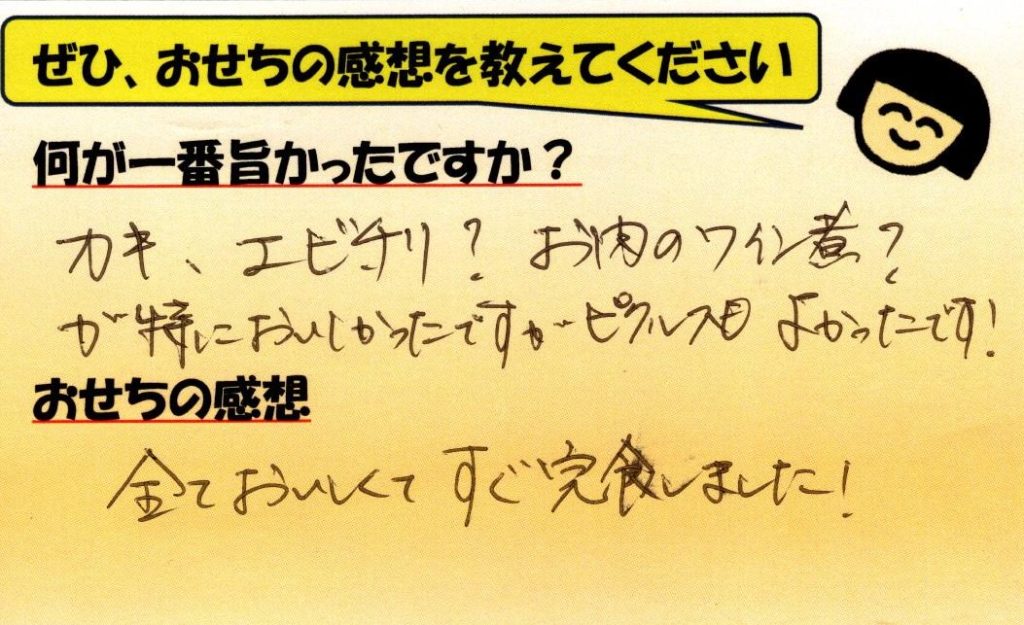 ぜひ、おせちの感想を教えてください
何が一番旨かったですか？
カキ、エビチリ？お肉のワイン煮？
が特においしかったですがピクルスもよかったです！
おせちの感想
全ておいしくてすぐ完食しました！